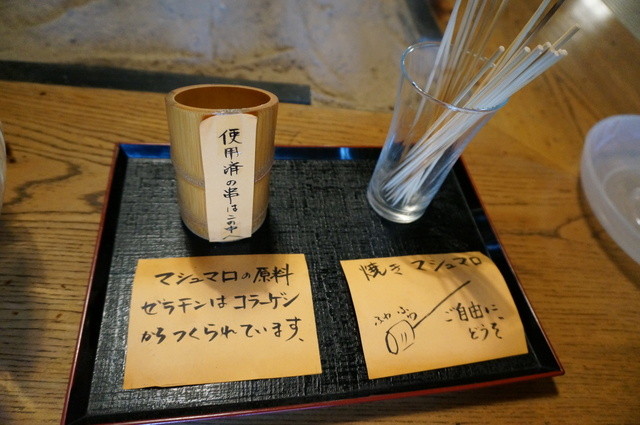 使用済の串はこの中へ
マシュマロの原料
ゼラチンはコラーゲン
からつくられています、
焼きマシュマロ
ふわふわ
ご自由に
どうぞ